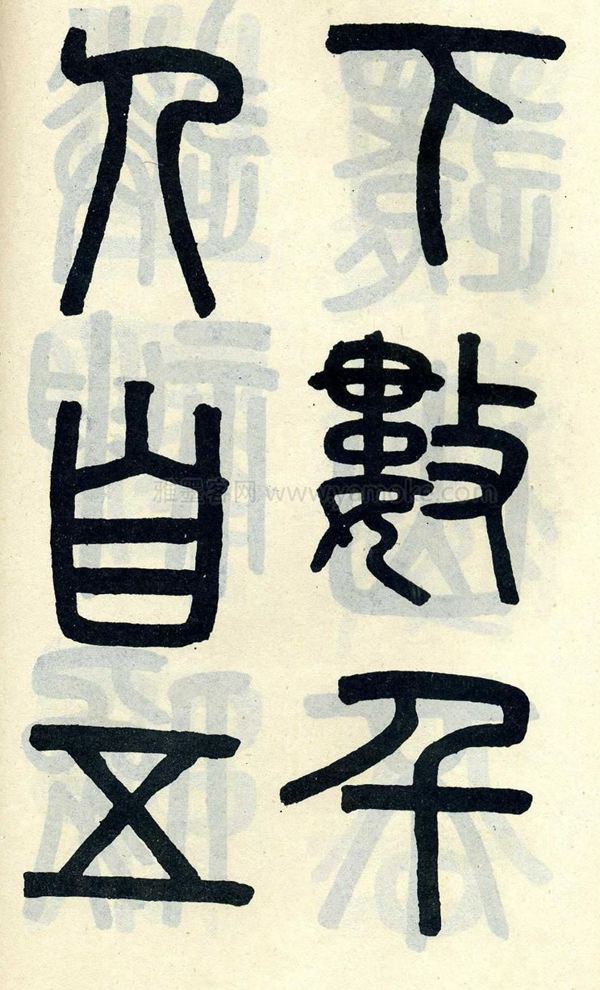 下數千
人自五
雅墨客网 www.yamoke.com